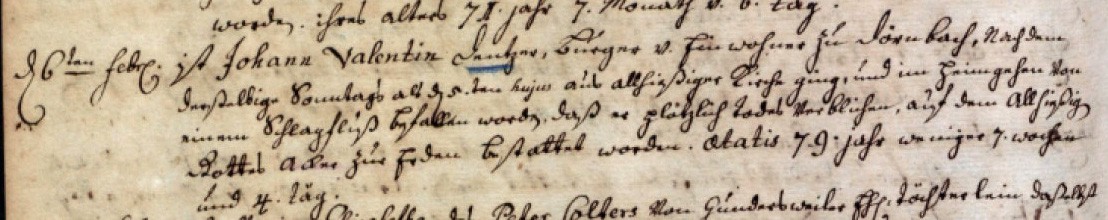 worden. ihres alters 71. jahr 7. Monath v. 6. tag.
d 6ten Febr. ist Johann Valentin Dentzer, burger v. Einwohner zu Dörnbach, Nachdem
derselbige Sonntags als d 5.ten hujus aus allhießiger Kirche ging, und im heimgehen von
einem Schlagfluß befallen worden, daß er plötzlich todes verblichen, auf dem Allhießig
Gottes Acker zur Erden bestattet worden. Ætatis 79. jahr weniger 7. wochen
und 4. täg.
des Peter Colters von Gundersweiler töchterlein, daselbst